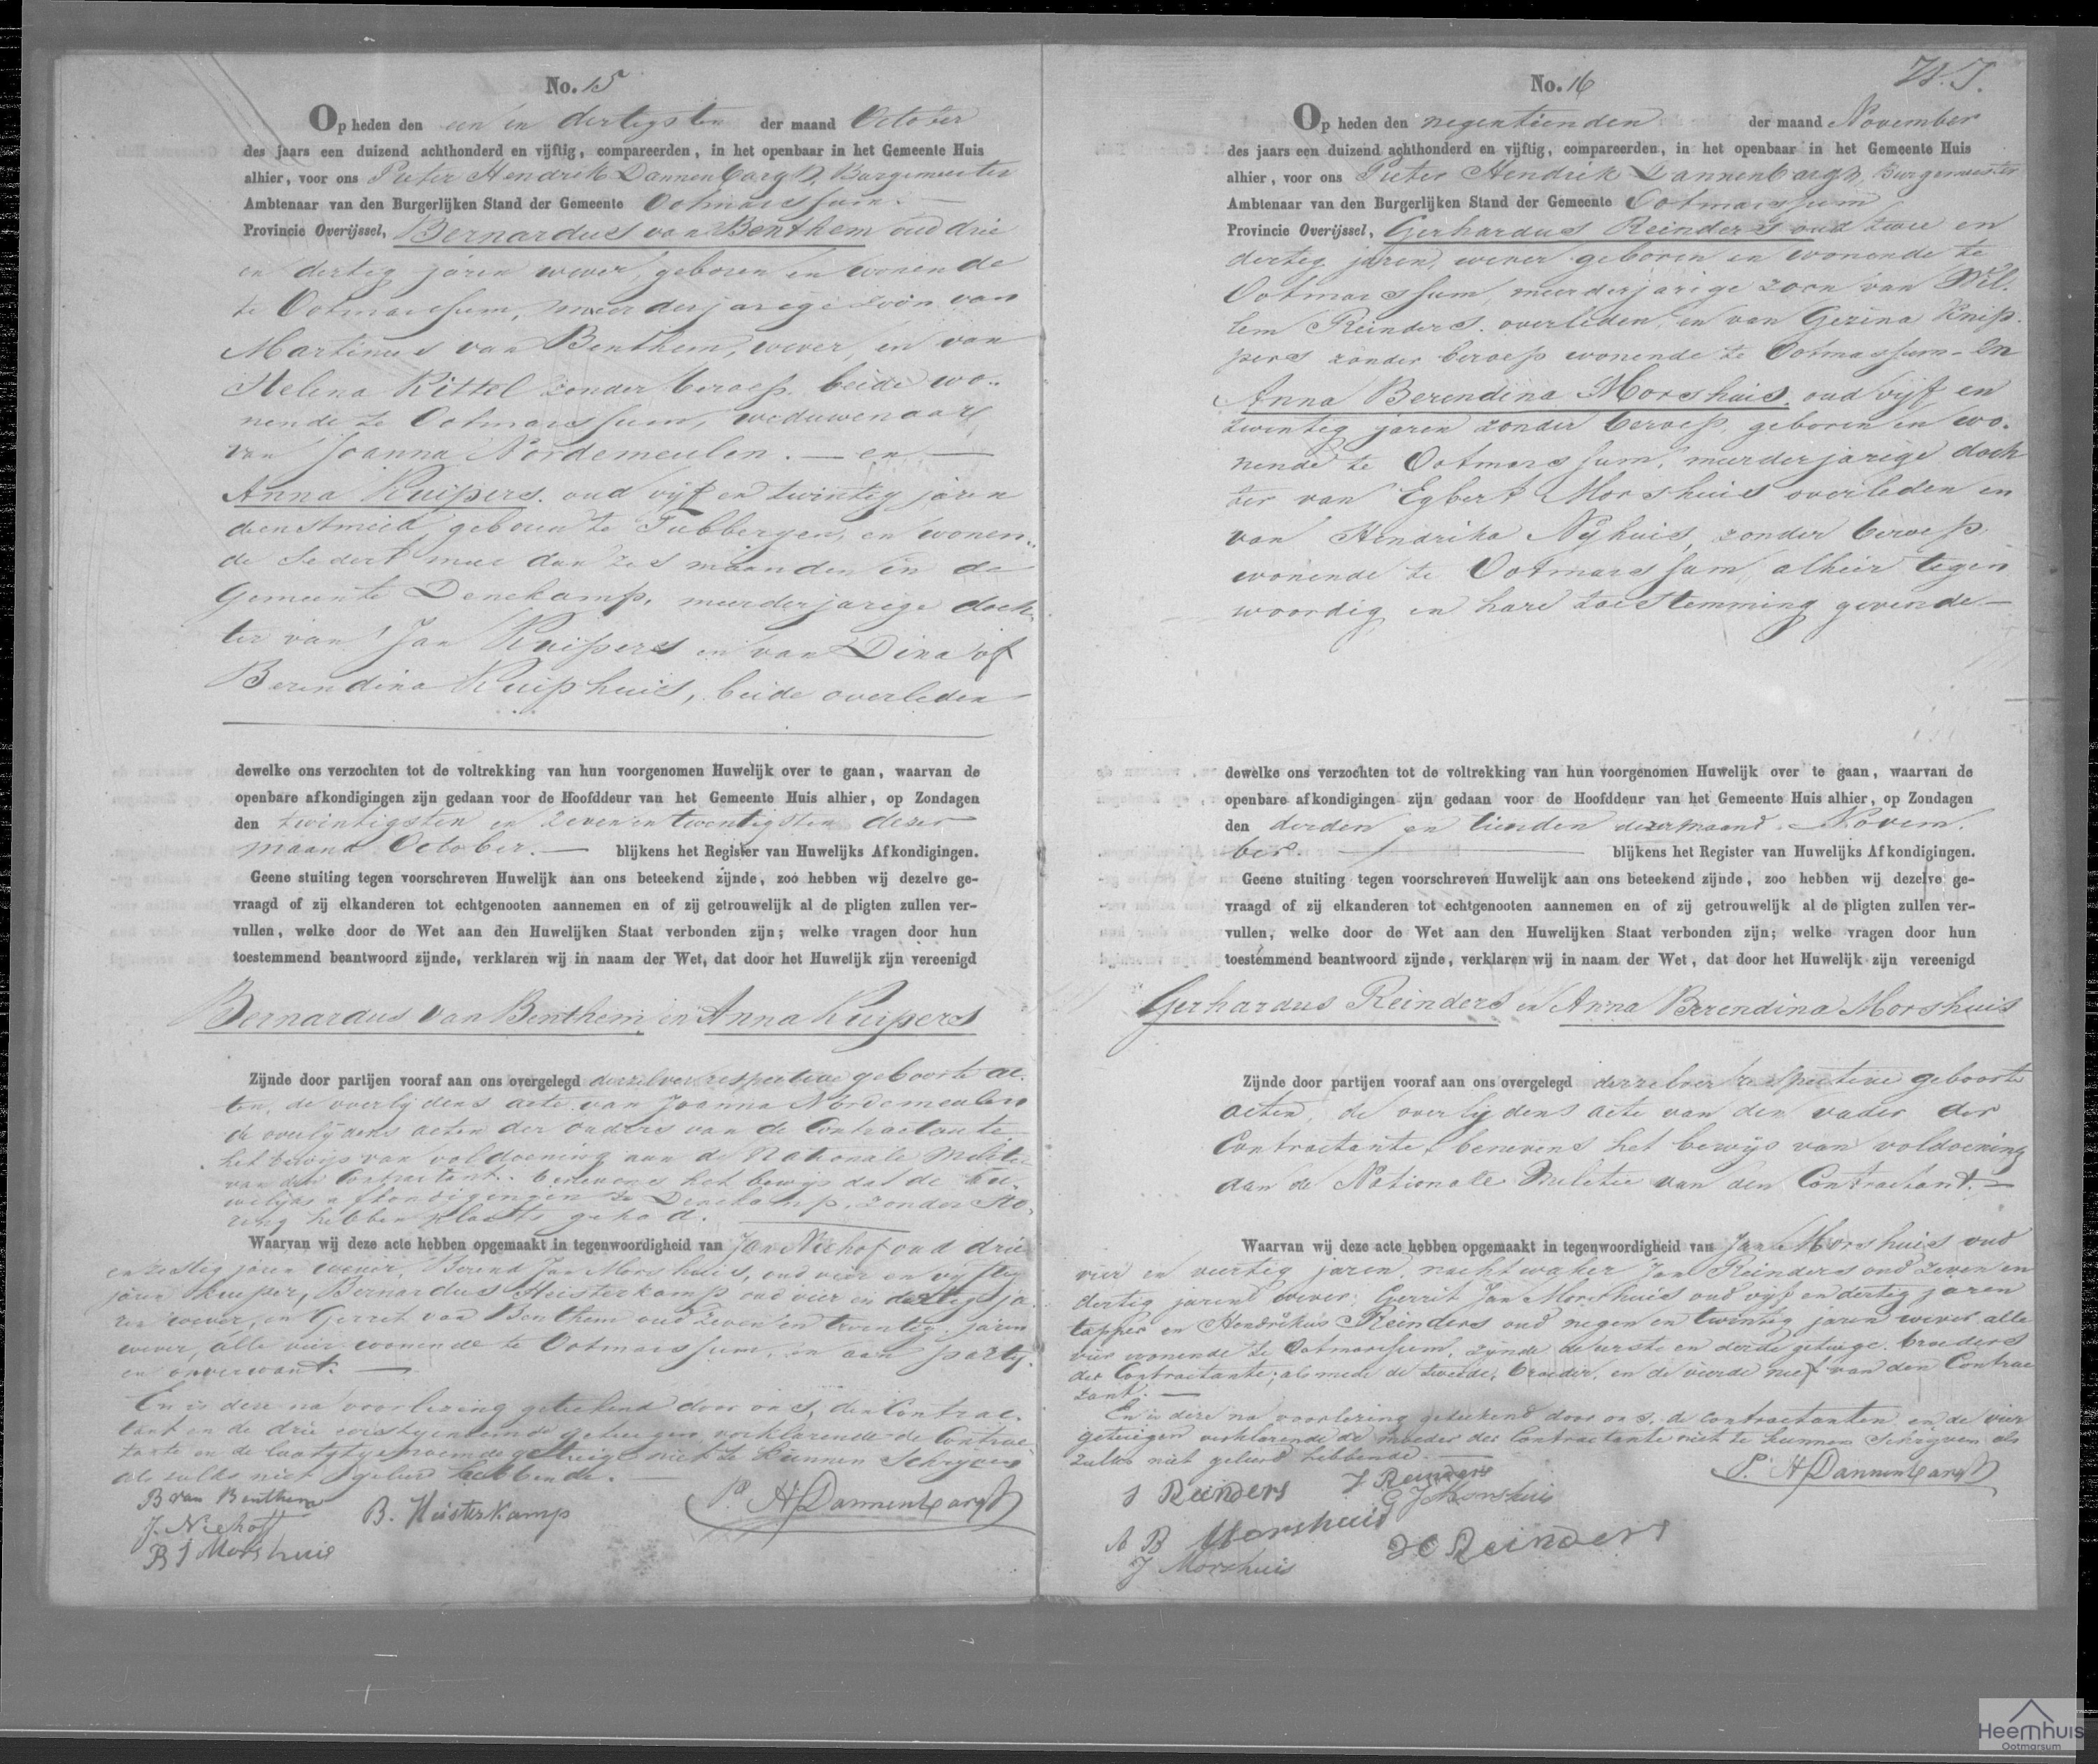 No. 15
Op heden den een en dertigsten der maand October
des jaars een duizend achthonderd en vijftig, compareerden, in het openbaar in het Gemeente Huis
alhier, voor ons Pieter Hendrik Dannenbargh, Burgemeester
Ambtenaar van den Burgerlijken Stand der Gemeente Ootmarssum.
Provincie Overijssel, Bernardus van Benthem oud drie
en dertig jaren wever, geboren en wonende
te Ootmarssum, meerderjarige zoon van
Martinus van Benthem, wever, en van
Helena Kittel zonder beroep, beide wo-
nende te Ootmarssum, weduwenaar
van Joanna Nordemeulen. — en —
Anna Kuipers. oud vijf en twintig jaren
dienstmeid geboren te Tubbergen, en wonen-
de sedert meer dan zes maanden in de
Gemeente Denekamp, meerderjarige doch-
ter van Jan Kuipers en van Dina of
Berendina Kuiphuis, beide overleden
dewelke ons verzochten tot de voltrekking van hun voorgenomen Huwelijk over te gaan, waarvan de
openbare afkondigingen zijn gedaan voor de Hoofddeur van het Gemeente Huis alhier, op Zondagen
den twintigsten en zeven en twintigsten dezer
maand October. — blijkens het Register van Huwelijks Afkondigingen.
Geene stuiting tegen voorschreven Huwelijk aan ons beteekend zijnde, zoo hebben wij dezelve ge-
vraagd of zij elkanderen tot echtgenooten aannemen en of zij getrouwelijk al de pligten zullen ver-
vullen, welke door de Wet aan den Huwelijken Staat verbonden zijn; welke vragen door hun
toestemmend beantwoord zijnde, verklaren wij in naam der Wet, dat door het Huwelijk zijn vereenigd
Bernardus van Benthem en Anna Kuipers
Zijnde door partijen vooraf aan ons overgelegd derzelver respective geboorte ac-
ten, de overlijdens acte van Joanna Nordemeulen
de overlijdens acten der ouders van de Contractante
het bewijs van voldoening aan de Nationale Militie
van den Contractant. benevens het bewijs dat de hu-
welijks afkondigingen te Denekamp, zonder sto-
ring hebben plaats gehad.
Waarvan wij deze acte hebben opgemaakt in tegenwoordigheid van Jan Niehof oud drie
en zestig jaren wever, Berend Jan Morshuis, oud vier en vijftig
jaren kuiper, Bernardus Heisterkamp oud vier en dertig ja-
ren wever, en Gerret van Benthem oud zeven en twintig jaren
wever, alle vier wonende te Ootmarssum, en aan partij-
en onverwant. —
En is deze na voorlezing geteekend door ons, den Contrac-
tant en de drie eerstgenoemde getuigen verklarende de Contrac-
tante en de laatstgenoemde getuige niet te kunnen schrijven
als zulks niet geleerd hebbende. —
B van Benthem
J. Niehoff
B J Morshuis
B. Heisterkamp
P. H. Dannenbargh
No. 16
Op heden den negentienden der maand November
des jaars een duizend achthonderd en vijftig, compareerden, in het openbaar in het Gemeente Huis
alhier, voor ons Pieter Hendrik Dannenbargh, Burgemeester
Ambtenaar van den Burgerlijken Stand der Gemeente Ootmarssum
Provincie Overijssel, Gerhardus Reinders oud twee en
dertig jaren, wever geboren en wonende te
Ootmarssum, meerderjarige zoon van Wil-
lem Reinders. overleden, en van Gezina Knip-
pers zonder beroep wonende te Ootmarssum - En
Anna Berendina Morshuis. oud vijf en
twintig jaren zonder beroep, geboren en wo-
nende te Ootmarssum, meerderjarige doch
ter van Egbert Morshuis overleden en
van Hendrika Nijhuis, zonder beroep
wonende te Ootmarssum, alhier tegen
woordig en hare toestemming gevende —
dewelke ons verzochten tot de voltrekking van hun voorgenomen Huwelijk over te gaan, waarvan de
openbare afkondigingen zijn gedaan voor de Hoofddeur van het Gemeente Huis alhier, op Zondagen
den derden en tienden dezer maand Novem-
ber. — blijkens het Register van Huwelijks Afkondigingen.
Geene stuiting tegen voorschreven Huwelijk aan ons beteekend zijnde, zoo hebben wij dezelve ge-
vraagd of zij elkanderen tot echtgenooten aannemen en of zij getrouwelijk al de pligten zullen ver-
vullen, welke door de Wet aan den Huwelijken Staat verbonden zijn; welke vragen door hun
toestemmend beantwoord zijnde, verklaren wij in naam der Wet, dat door het Huwelijk zijn vereenigd
Gerhardus Reinders en Anna Berendina Morshuis
Zijnde door partijen vooraf aan ons overgelegd derzelver respective geboorte
acten, de overlijdens acte van den vader der
Contractante, benevens het bewijs van voldoening
aan de Nationale Militie van den Contractant. —
Waarvan wij deze acte hebben opgemaakt in tegenwoordigheid van Jan Morshuis oud
vier en veertig jaren, nachtwaker Jan Reinders oud zeven en
dertig jaren wever, Gerrit Jan Morshuis oud vijf en dertig jaren
tapper en Hendrikus Reinders oud negen en twintig jaren wever alle
vier wonende te Ootmarssum, zijnde de eerste en derde getuige broeders
der Contractante; als mede de tweede broeder, en de vierde neef van den Contrac
tant. —
En is deze na voorlezing geteekend door ons, de contractanten en de vier
getuigen verklarende de moeder der Contractante niet te kunnen schrijven als
zulks niet geleerd hebbende.
P. H Dannenbargh
Reinders
J Reinders
G J Morshuis
A B Morshuis
J Morshuis
H Reinders
Heemhuis
Ootmarsum